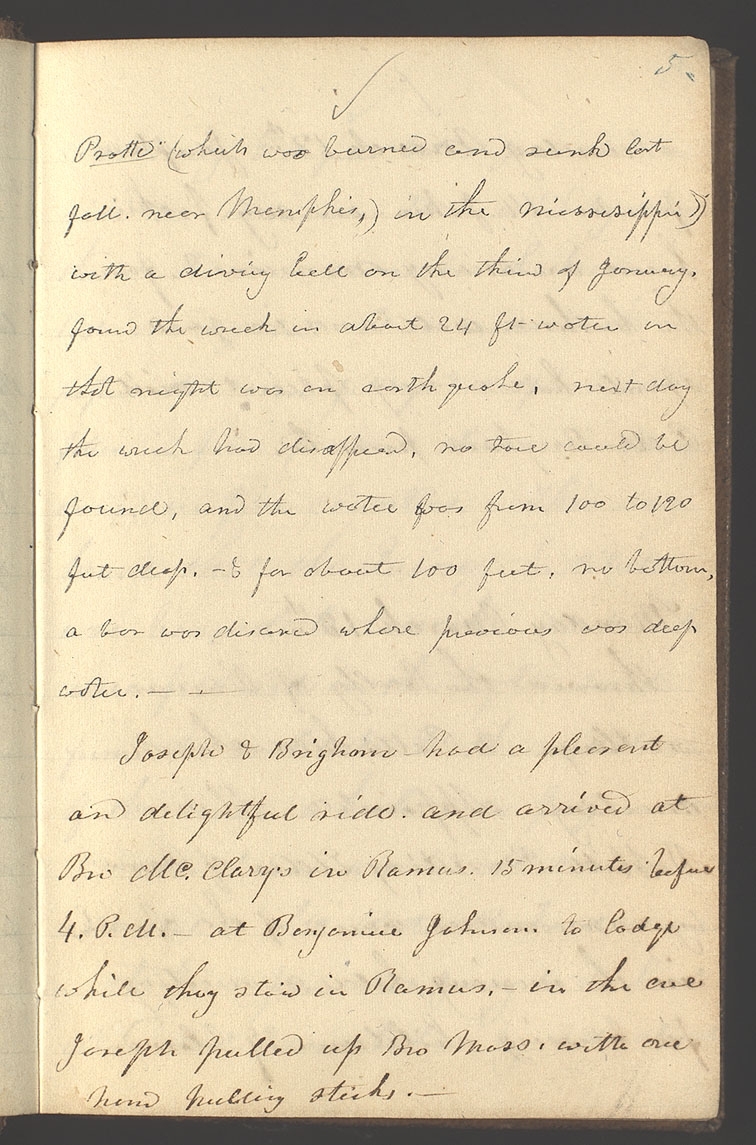 5.
Pratte" (which was burned and sunk last
fall. near Memphis,) in the Mississippii))
with a diving bell on the third of January.
found the wreck in about 24 ft water in
that night was an earthquake, next day
the wreck had disappeared, no trace could be
found, and the water was from 100 to 120
feet deep. - & for about 100 feet. no bottom,
a bar was discovered where previous was deep
water. — —
Joseph & Brigham had a pleasent
and delightful ride. and arrived at
Bro Mc. Clary's in Ramus. 15 minutes before
4. P.M. - at Benjamine Johnson. to lodge
while they staid in Ramus. - in the eve
Joseph pulled up Bro Moss. with one
hand pulling sticks. —